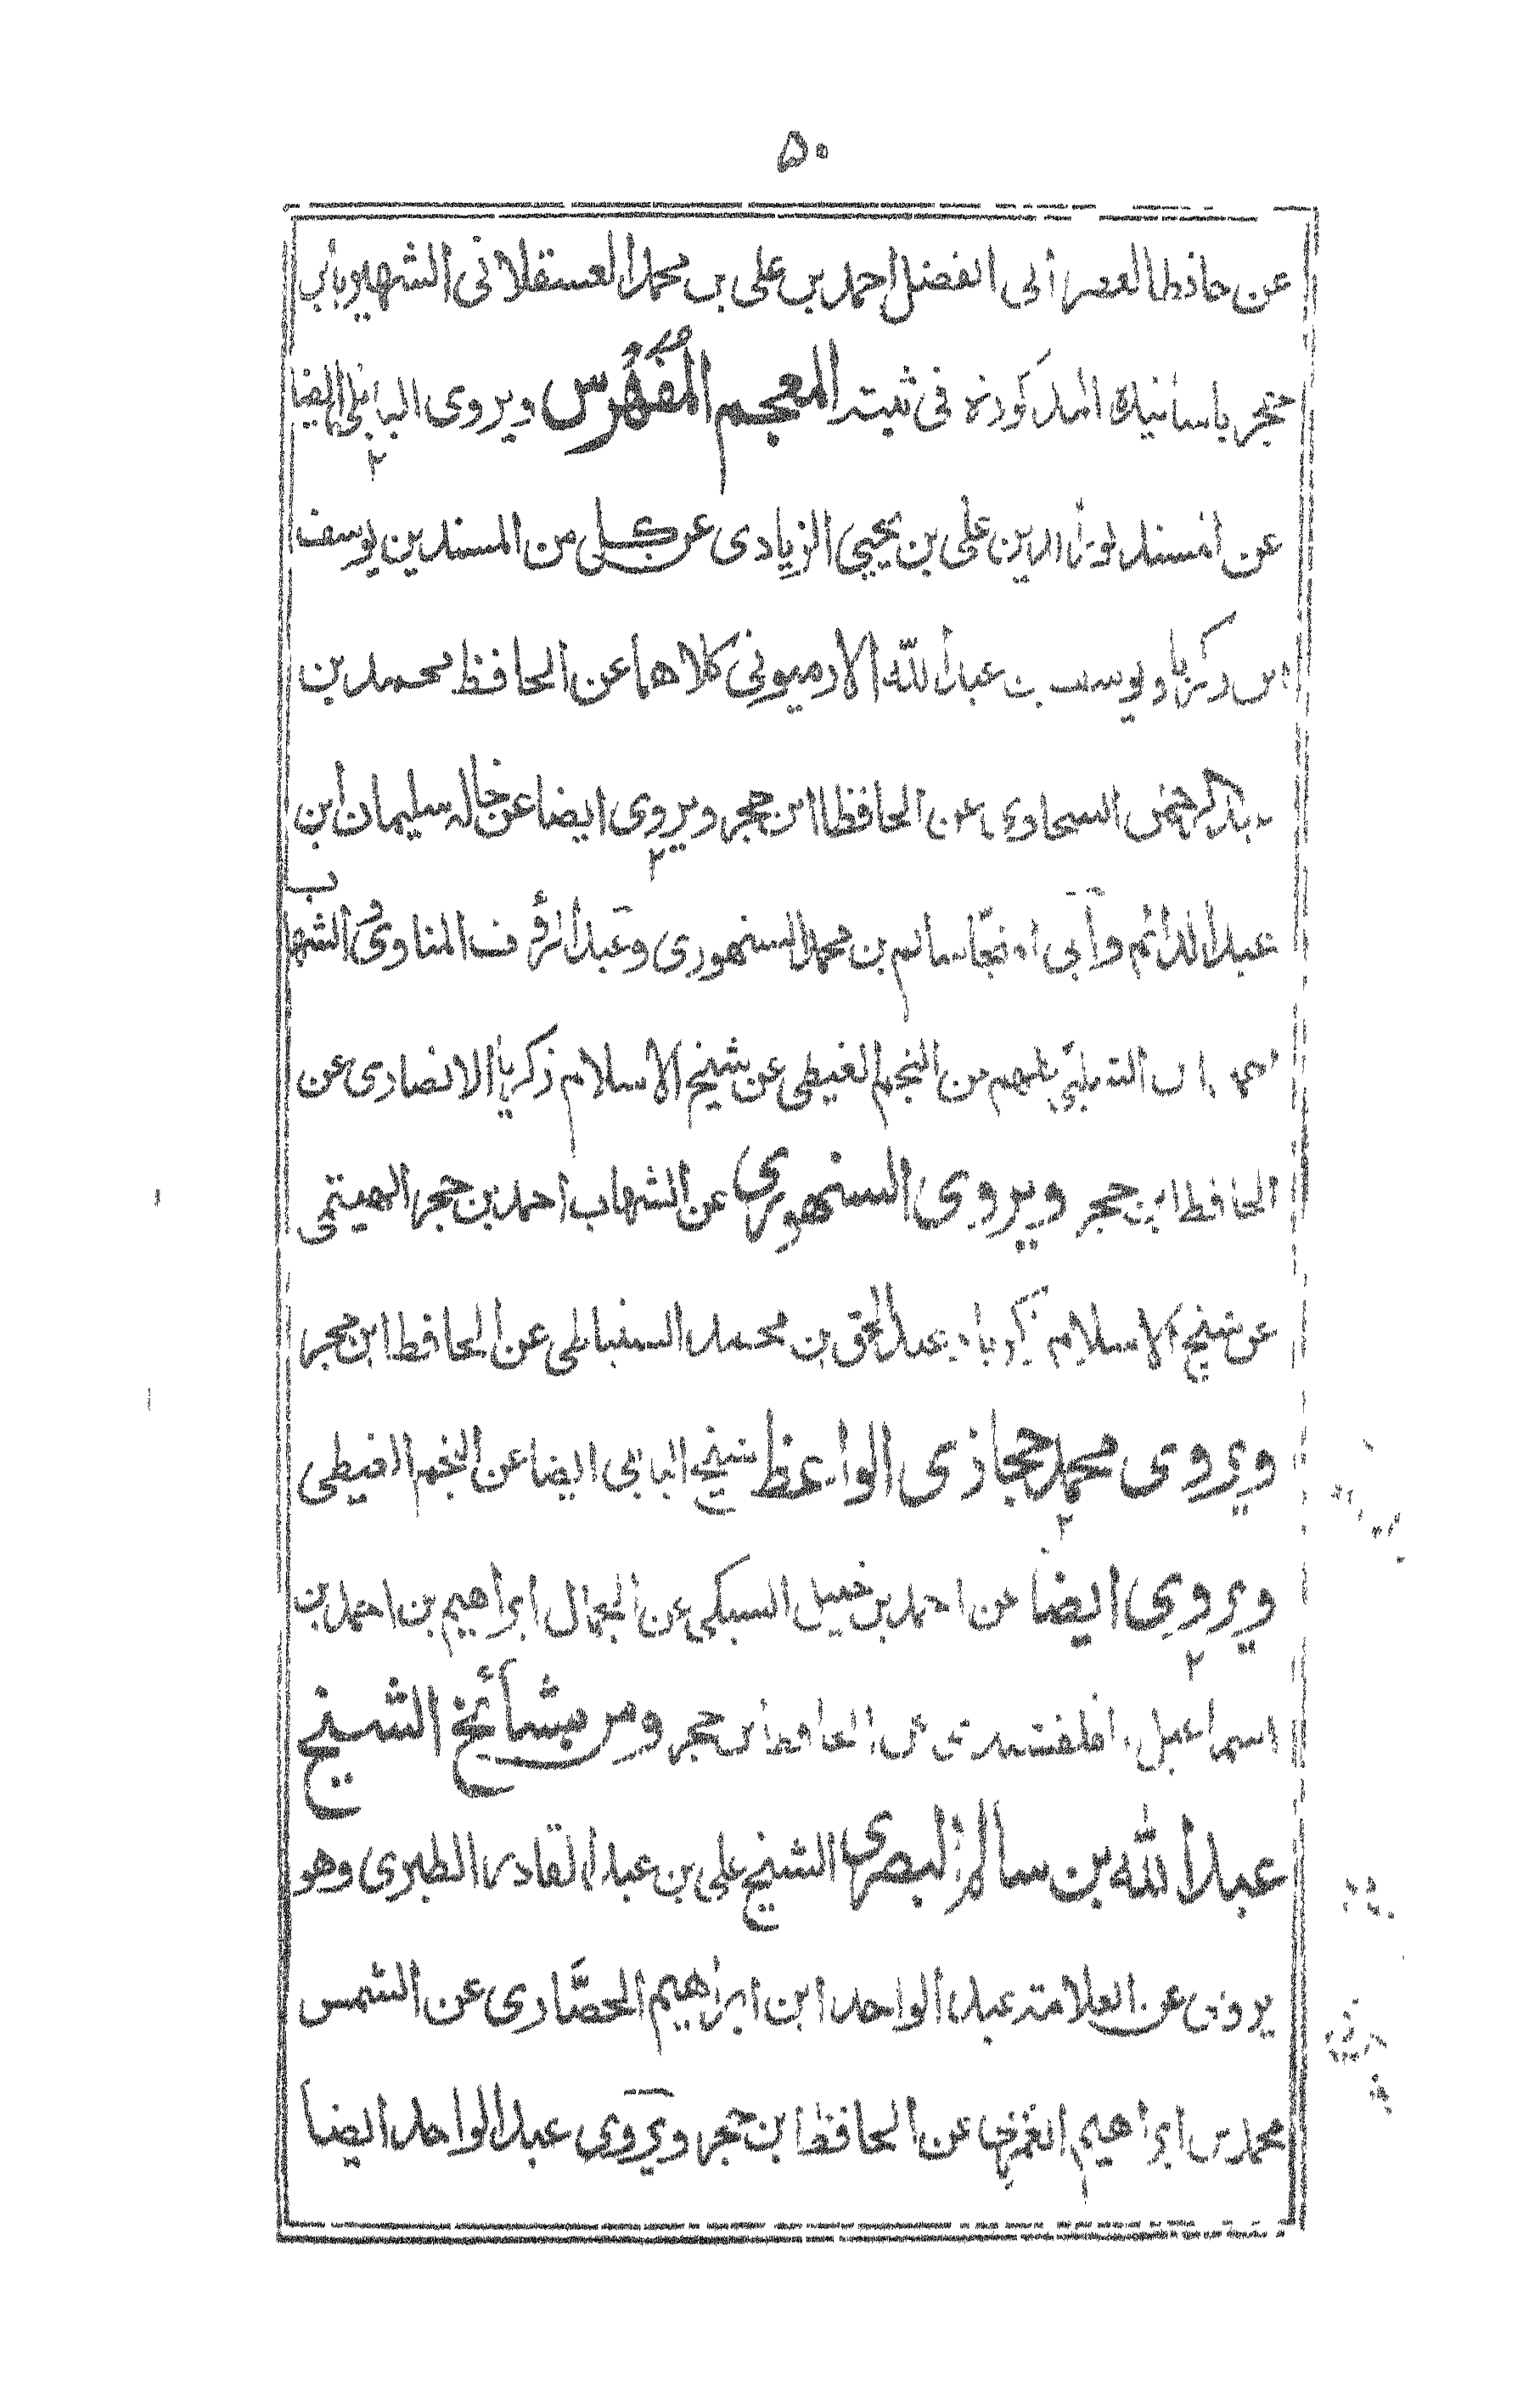 ۵۰
عن حافظ العصر ابى الفضل احمد بن على بن محمد العسقلانى الشهير بابن
حجر باسانيده المذكورة فى ثبته المعجم المفهرس ويروى البابلى ايضا
عن المسند نور الدين على بن يحيى الزيادى عن كل من المسندين يوسف
بن زكريا ويوسف بن عبد الله الارميونى كلاهما عن الحافظ محمد بن
السخاوى عن الحافظ ابن حجر ويروى ايضا عن خاله سليمان بن
عبد الدائم وابى النجا سالم بن محمد السنهورى وعبد الرؤف المناوى والشهاب
عن النجم الغيطى عن شيخ الاسلام زكريا الانصارى عن
الحافظ ابن حجر ويروى السنهورى عن الشهاب احمد بن حجر الهيتمى
عن شيخ الاسلام زكريا وعبد الحق بن محمد السنباطى عن الحافظ ابن حجر
ويروى محمد حجازى الواعظ شيخ البابلى ايضا عن النجم الغيطى
ويروى ايضا عن احمد بن خليل السبكى عن الجمال ابراهيم بن احمد بن
اسماعيل القلقشندى عن الحافظ ابن حجر ومن مشائخ الشيخ
عبد الله بن سالم البصرى الشيخ على بن عبد القادر الطبرى وهو
يروى عن العلامة عبد الواحد ابن ابراهيم الحصّارى عن الشمس
محمد بن ابراهيم الغمرى عن الحافظ ابن حجر ويروى عبد الواحد ايضا